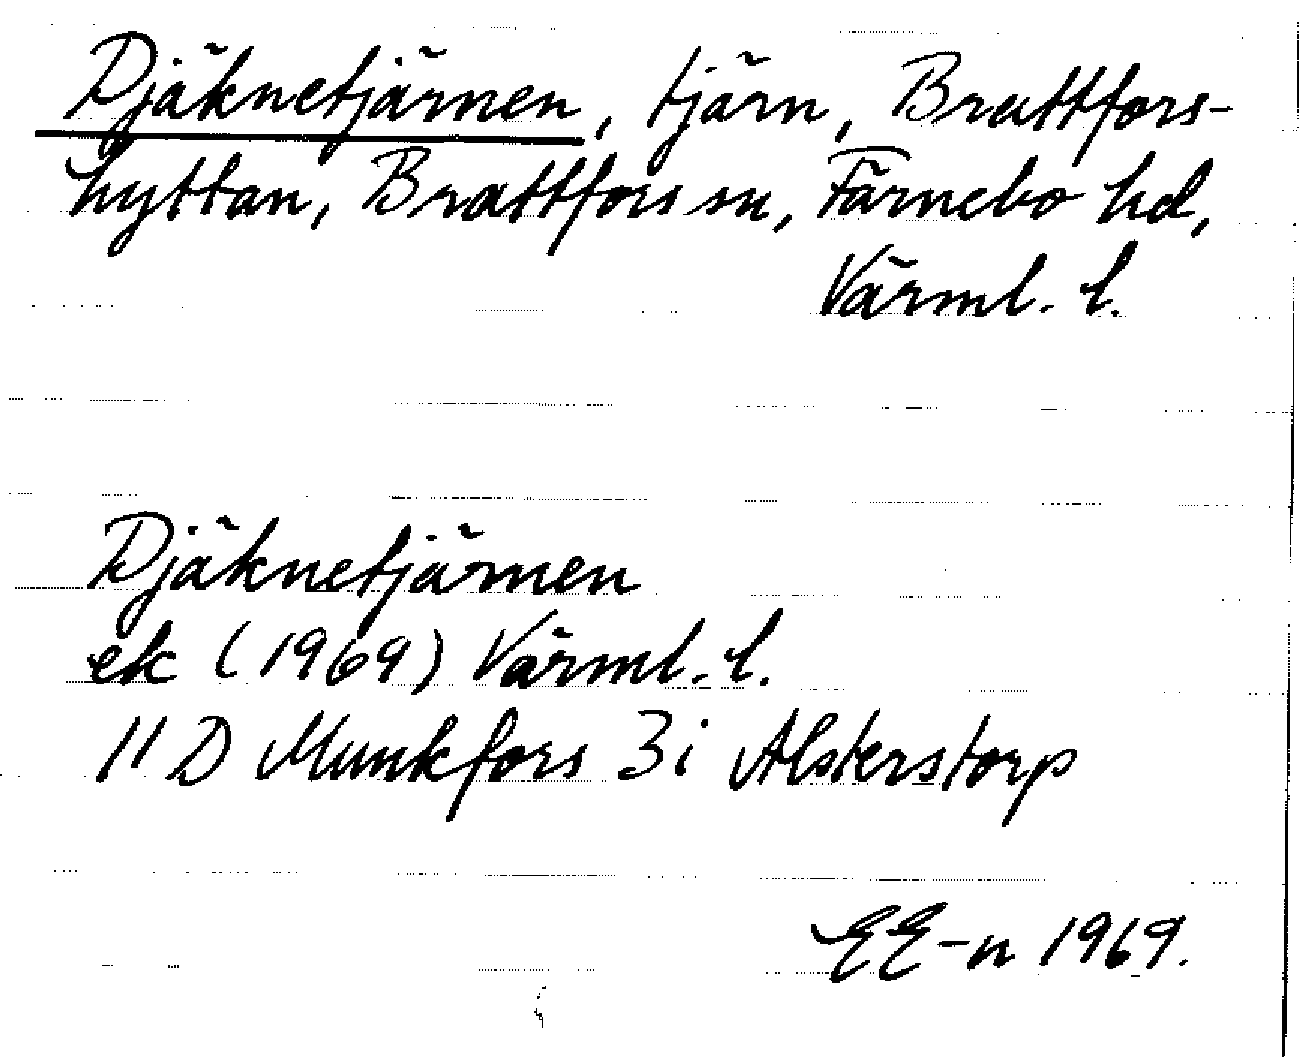 Djäknetjärnen, tjärn, Brattfors-
hyttan, Brattfors sn, Färnebo hd,
Värml. l.
Djäknetjärnen
ek (1969) Värml. l.
11 D Munkfors 3i Alsterstorp
EE-n 1969.